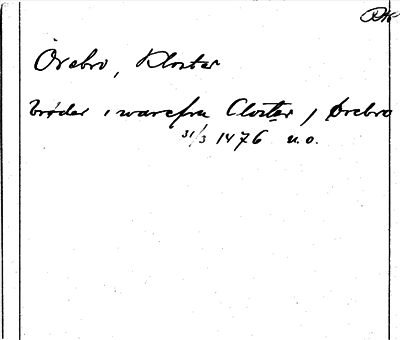 Örebro, Kloster
brøder i warefru Closter i Ørebro
31/3 1476 u.o.